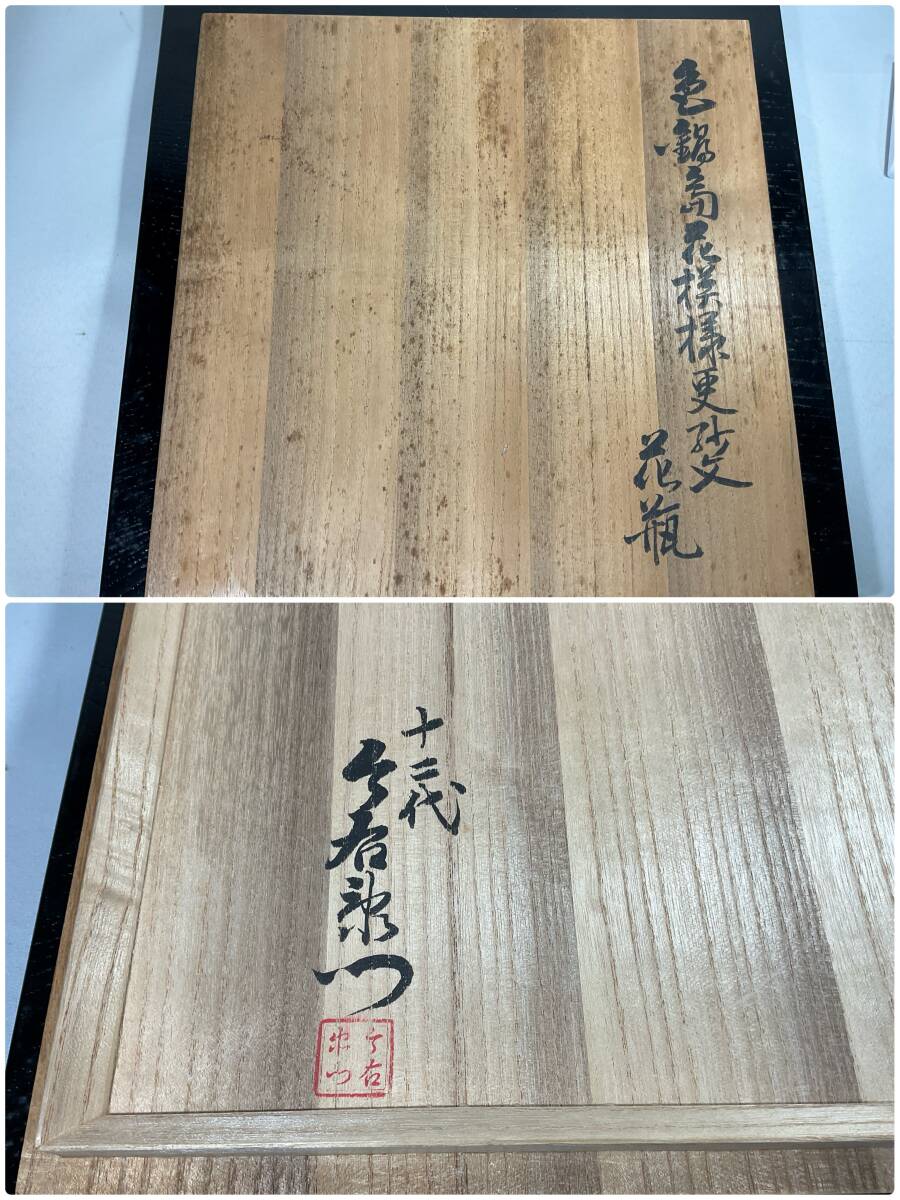 色鍋島花模様更紗文
花瓶
十二代
今右衛門
今右
衛門